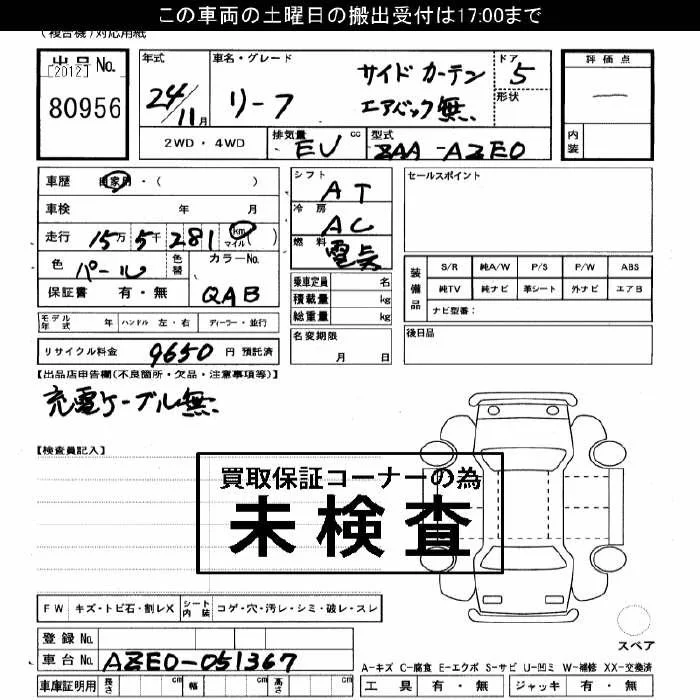 この車両の土曜日の搬出受付は17:00まで
(複合機)対応用紙
出品No.
[2012]
80956
年式
24/11月
車名・グレード
リーフ
サイド カーテン
エアバック無
ドア
5
形状
評価点
—
内装
2WD・4WD
排気量
EV
cc
型式
ZAA-AZE0
車歴 自家用・( )
車検 年 月
走行 15万 5千 281 km マイル ( )
色 パール
色替
カラーNo.
QAB
保証書 有・無
モデル年式 年 ハンドル 左・右 ディーラー・並行
リサイクル料金 9650 円 預託済
シフト AT
冷房 AC
燃料 電気
乗車定員 名
積載量 kg
総重量 kg
名変期限
月 日
セールスポイント
装備品
S/R 純A/W P/S P/W ABS
純TV 純ナビ 革シート 外ナビ エアB
ナビ型番:
後日品
【出品店申告欄(不良箇所・欠品・注意事項等)】
充電ケーブル無
【検査員記入】
買取保証コーナーの為
未検査
FW キズ・トビ石・割レX シート内装 コゲ・穴・汚レ・シミ・破レ・スレ
登録No.
車台No. AZE0-051367
車庫証明用 長さ cm 幅 cm 高さ cm
スペア
A-キズ C-腐食 E-エクボ S-サビ U-凹ミ W-補修 XX-交換済
工具 有・無 ジャッキ 有・無